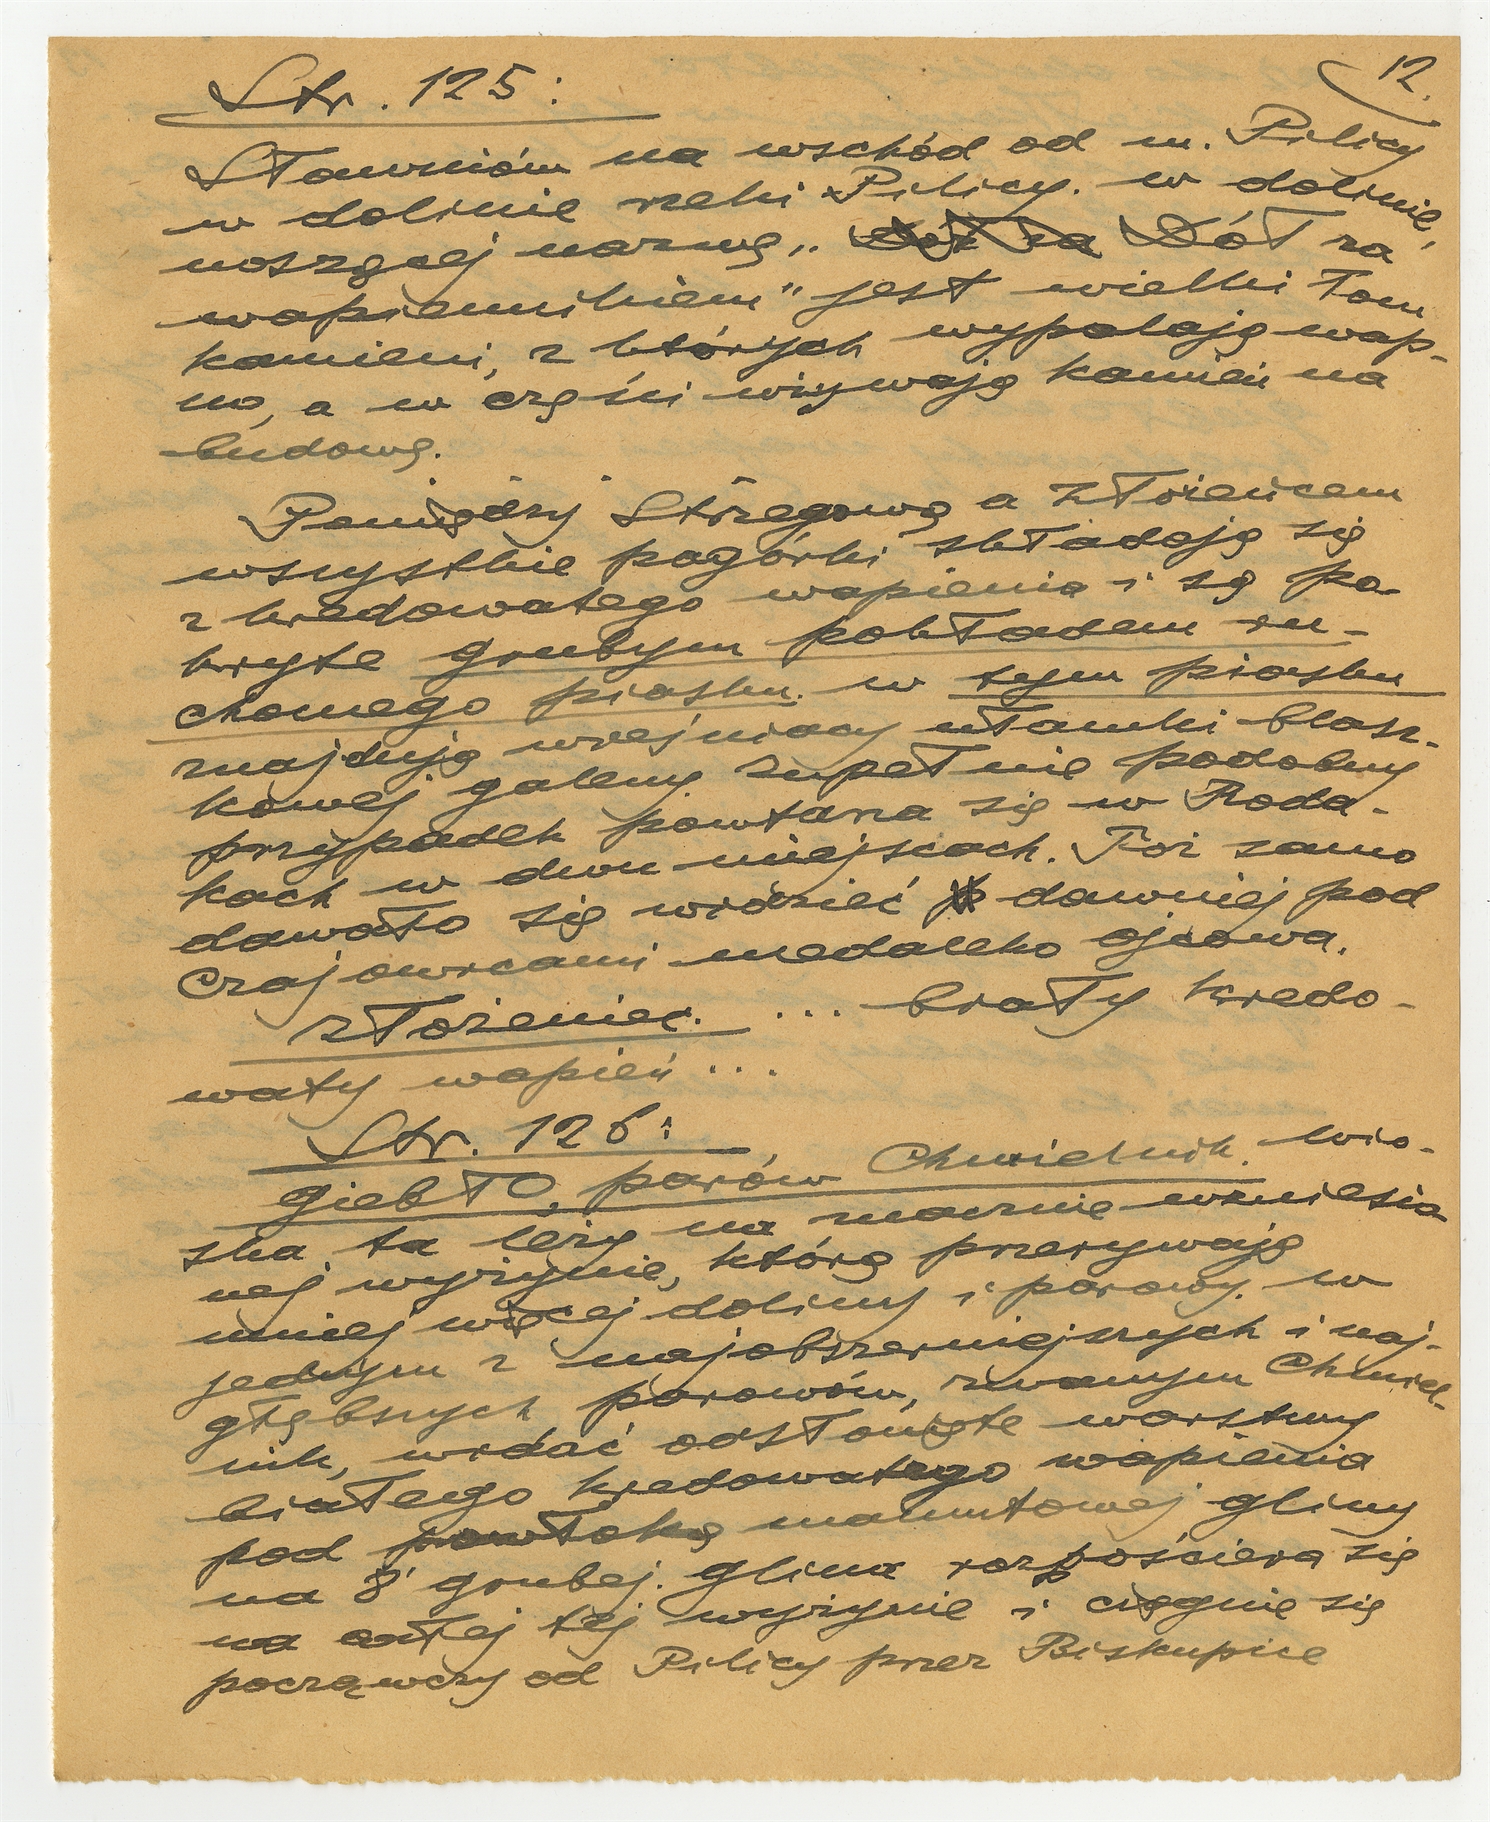 12.
Str. 125:
Sławniów na wschód od m. Pilicy
w dolinie rzeki Pilicy. w dolinie,
noszącej nazwę „ Dół za
wapiennikiem" jest wielki łom
kamieni, z których wypalają wap-
no, a w części używają kamień na
budowę.
Pomiędzy Strzegową a Złożeńcem
wszystkie pagórki składają się
z kredowatego wapienia i są po-
kryte grubym pokładem ru-
chomego piasku. w tym piasku
znajdują wieśniacy ułamki blasz-
kowej galeny. zupełnie podobny
przypadek powtarza się w Roda-
kach w dwu miejscach. Toż samo
dawało się widzieć dawniej pod
Czajowicami niedaleko Ojcowa.
Złożeniec. ... biały kredo-
waty wapień ...
Str. 126:
Giebło, parów Chmielnik. Wio-
ska ta leży na znacznie wzniesio-
nej wyżynie, którą przerywają
mniej więcej doliny i parowy. w
jednym z najobszerniejszych i naj-
głębszych parowów, zwanym Chmiel-
nik, widać odsłonięte warstwy
białego kredowatego wapienia
pod powłoką mamutowej gliny
na 8' grubej. Glina rozpościera się
na całej tej wyżynie i ciągnie się
począwszy od Pilicy przez Biskupice